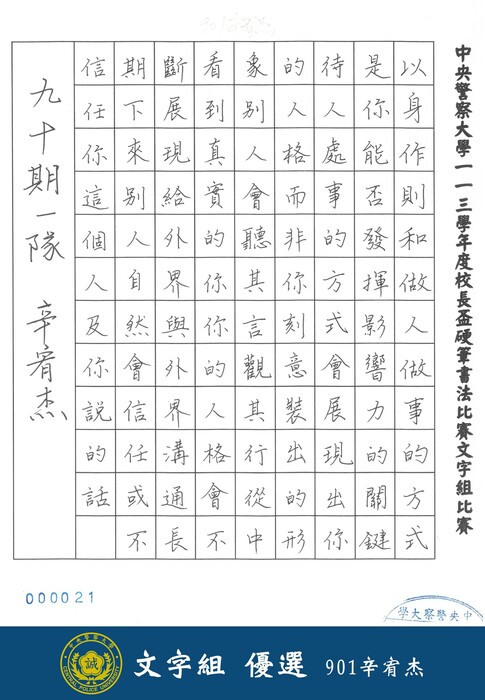 中央警察大學一一三學年度校長盃硬筆書法比賽文字組比賽
以身作則和做人做事的方式
是你能否發揮影響力的關鍵
待人處事的方式會展現出你
的人格而非你刻意裝出的形
象別人會聽其言觀其行從中
看到真實的你你的人格會不
斷展現給外界與外界溝通長
期下來別人自然會信任或不
信任你這個人及你說的話
九十期一隊 辛宥杰
000021
中央警察大學
中央警察大學
誠
CENTRAL POLICE UNIVERSITY
文字組 優選 901辛宥杰